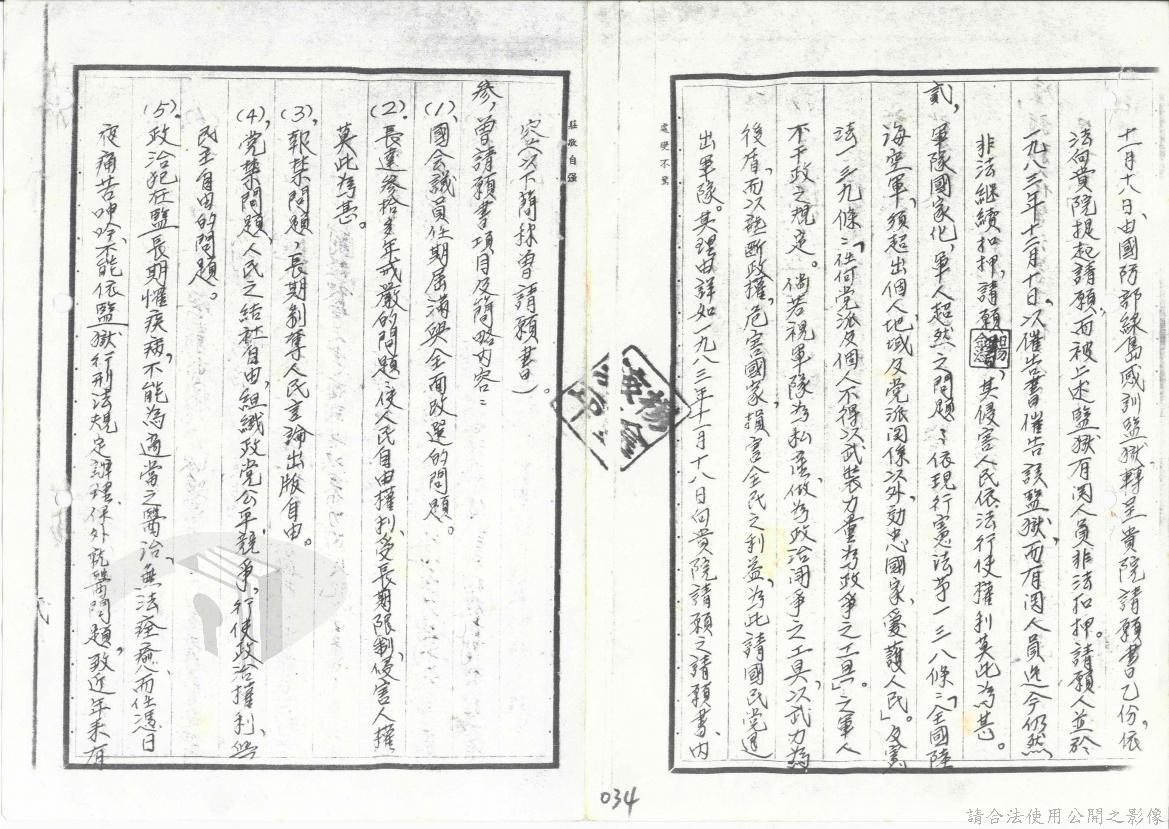 十一月十八日、由國防部綠島感訓監獄、轉呈貴院請願書乙份，依
法向貴院提起請願、而被上述監獄有関人員非法扣押。請願人並於
一九八三年十二月十日、以催告書催告該監獄、而有関人員迄今仍然
非法継續扣押、請願書、其侵害人民依法行使權利莫此為甚。
貳，軍隊國家化，軍人超然之問題：依現行憲法第一三八條：「全國陸
海空軍、須超出個人、地域及党派関係以外、効忠國家、愛護人民」。及憲
法一三九條：「任何党派及個人不得以武裝力量為政爭之工具」。之軍人
不干政之規定。倘若視軍隊為私產、做為政治鬥爭之工具、以武力為
後盾、而以壟斷政權、危害國家、損害全民之利益、為此請國民党退
出軍隊。其理由詳如一九八三年十一月十八日向貴院請願之請願書、內
容（以下簡稱曾請願書）。
參，曾請願書項目及簡略內容：
(1)、國会議員任期屆滿與全面改選的問題。
(2)、長達參拾多年戒嚴的問題：使人民自由權利、受長期限制、侵害人權
莫此為甚。
(3)、報禁問題，長期剝奪人民言論出版自由。
(4)、党禁問題、人民之結社自由，組織政党公平競爭，行使政治權利、與
民主自由的問題。
(5)、政治犯在監長期罹疾病，不能為適當之醫治、無法痊癒、而任憑日
夜痛苦呻吟、不能依監獄行刑法規定辦理、保外就醫問題，致近年來有
莊敬自強
處變不驚
楊金海
034
請合法使用公開之影像